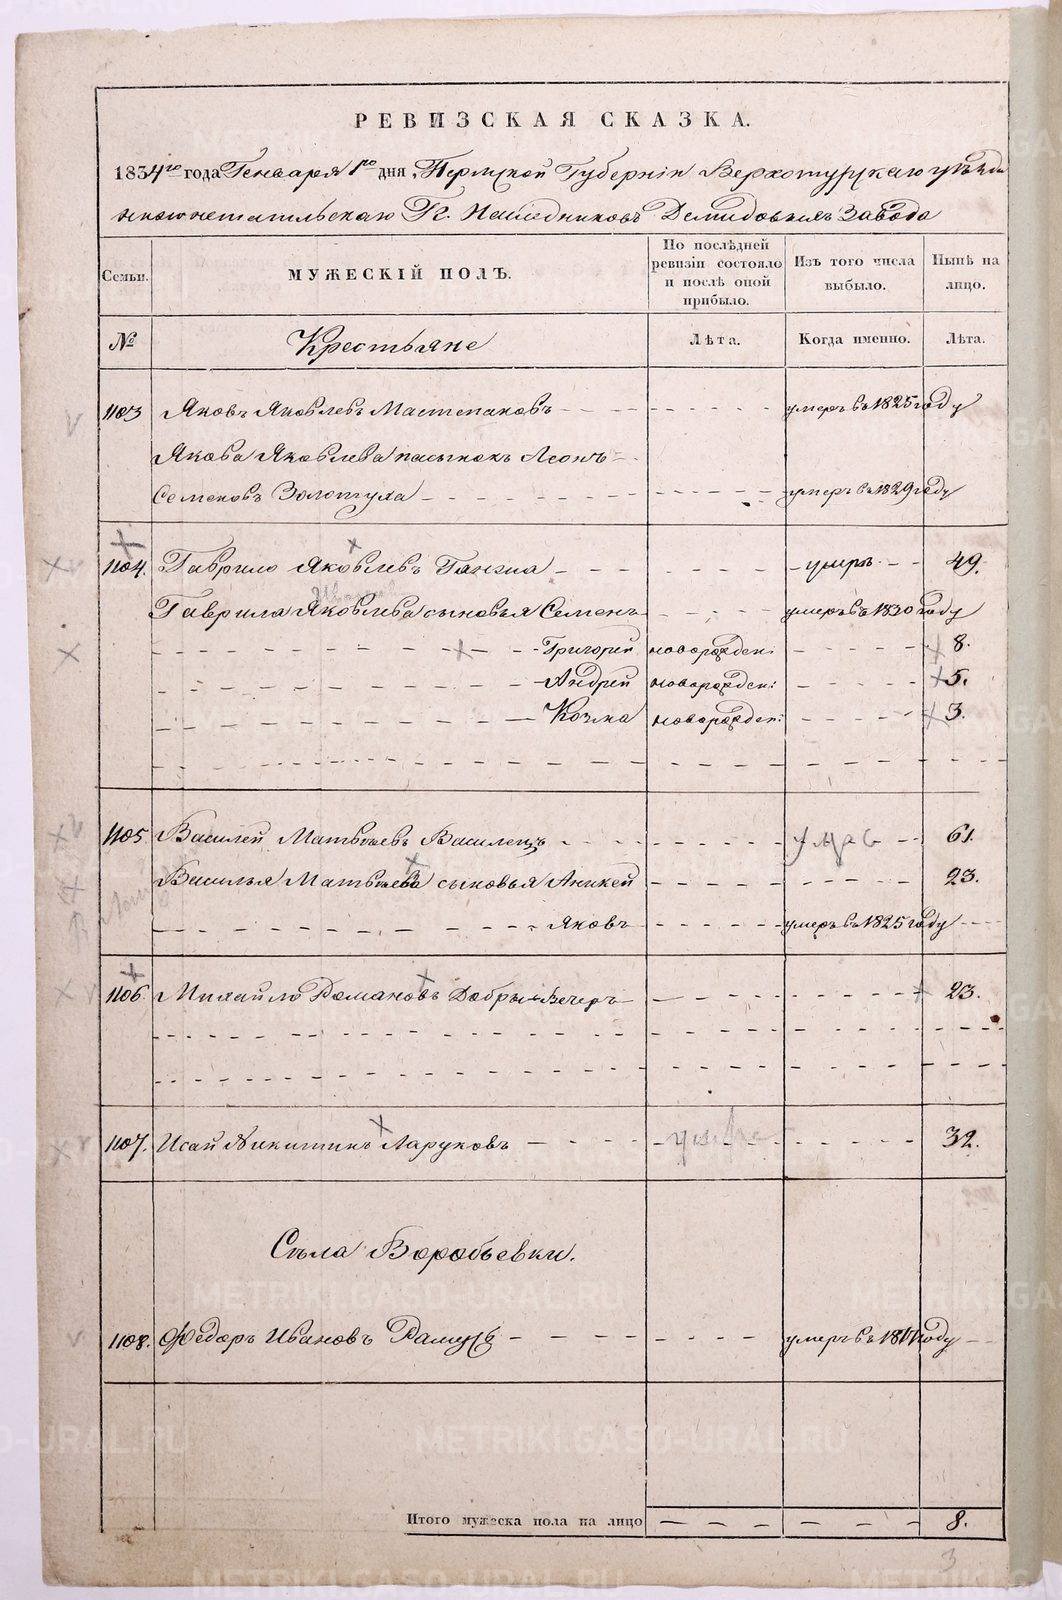 РЕВИЗСКАЯ СКАЗКА.
1834го года Генваря 1го дня, Пермской Губернiи Верхотурскаго уѣзда
нижнетагильскаго Гг. Наследниковъ Демидовыхъ Завода
Семьи. МУЖЕСКІЙ ПОЛЪ. По послѣдней ревизіи состояло и послѣ оной прибыло. Изъ того числа выбыло. Нынѣ на лицо.
№ Крестьяне Лѣта. Когда именно. Лѣта.
1103 Яковъ Яковлевъ умеръ въ 1825 году
Якова Яковлева пасынокъ Леонъ
Семеновъ Золотуха умеръ въ 1829 году
1104. Гаврило Яковлевъ Ганжа умеръ 49.
Гаврила Яковлева сыновья Семенъ умеръ въ 1830 году
Григорей новорожден: 8.
Андрей новорожден: 5.
Козма новорожден: 3.
1105 Василей Матвѣевъ Василецъ умеръ 61.
Василья Матвѣева сыновья Аникей 23.
Яковъ умеръ въ 1825 году
1106 Михайло Романовъ Добры-Вечеръ 23.
1107. Исай Никитинъ Ларуковъ 32.
Сѣла Воробьевки.
1108. Федоръ Ивановъ умеръ въ году
Итого мужеска пола на лицо 8.
3
METRIKI.GASO-URAL.RU